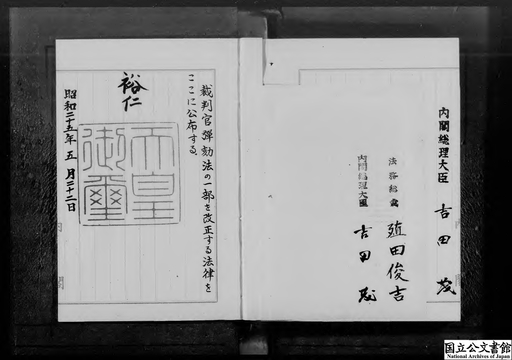 裁判官弾劾法の一部を改正する法律を
ここに公布する。
裕仁
天皇
御璽
昭和二十五年五月二十二日
内閣総理大臣 吉田茂
法務総裁 殖田俊吉
内閣総理大臣 吉田茂
国立公文書館
National Archives of Japan